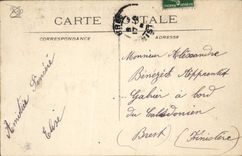 CARTE POSTALE
CORRESPONDANCE
ADRESSE
Monsieur Alexandre
Bénézib Apprenti
Gabier à bord
du Calédonien
(Brest) (Finistère)
Amitié Sincère
Elise